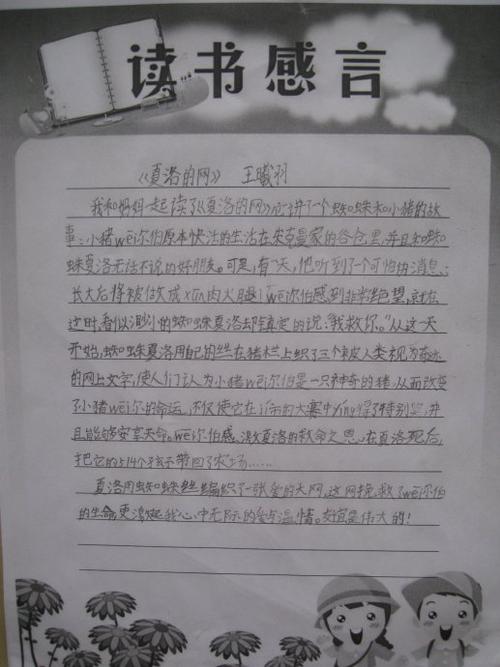 读书感言
《夏洛的网》 王曦羽
我和妈妈一起读了《夏洛的网》它讲了一个蜘蛛和小猪的故
事：小猪wei尔伯原本快活的生活在朱克曼家的谷仓里,并且和蜘
蛛夏洛无话不说的好朋友。可是,有一天,他听到了一个可怕的消息：
长大后将被做成xun肉火腿！wei尔伯感到非常绝望,就在
这时,看似渺小的蜘蛛夏洛却镇定的说："我救你。"从这一天
开始,蜘蛛夏洛用自己的丝在猪栏上织了三个被人类视为奇迹
的网上文字,使人们认为小猪wei尔伯是一只神奇的猪,从而改变
了小猪wei尔的命运,不仅使它在的大赛中ying得了特别奖,并
且能够安享天命。wei尔伯感激夏洛的救命之恩,在夏洛死后,
把它的514个孩子带回了农场……
夏洛用蜘蛛丝编织了一张爱的大网,这网挽救了wei尔伯
的生命,更激起我心中无际的爱与温情。友谊是伟大的！